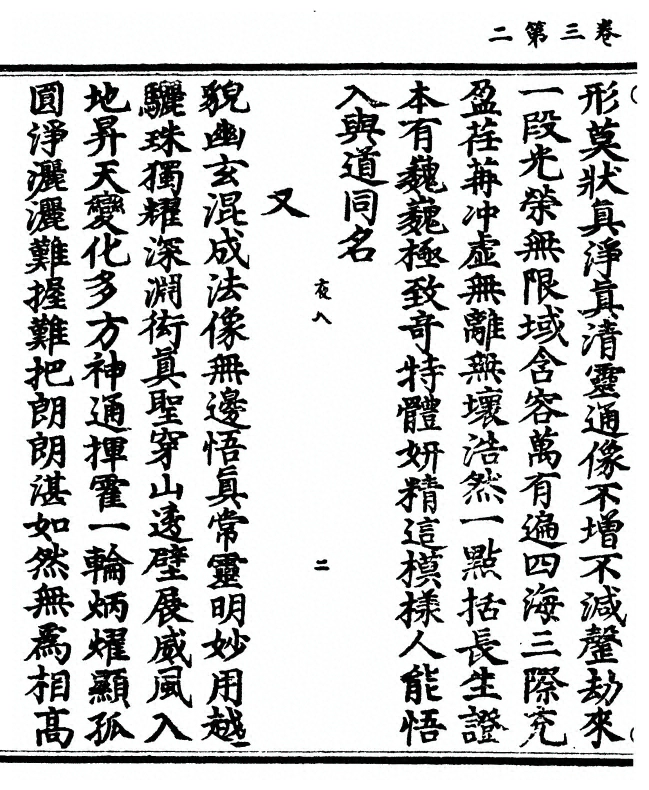 卷三第二
形莫狀真淨真清靈通像不增不減劫來
一段光榮無限域含容萬有遍四海三際充
盈荏苒冲虛無離無壞浩然一點括長生證
本有巍巍極致奇特體妍精這模樣人能悟
入與道同名
夜八　二
又
貌幽玄混成法像無邊悟真常靈明妙用越
驪珠獨耀深淵衒真聖穿山透壁展威風入
地昇天變化多方神通揮霍一輪炳燿顯孤
圓淨灑灑難握難把朗朗湛如然無爲相高